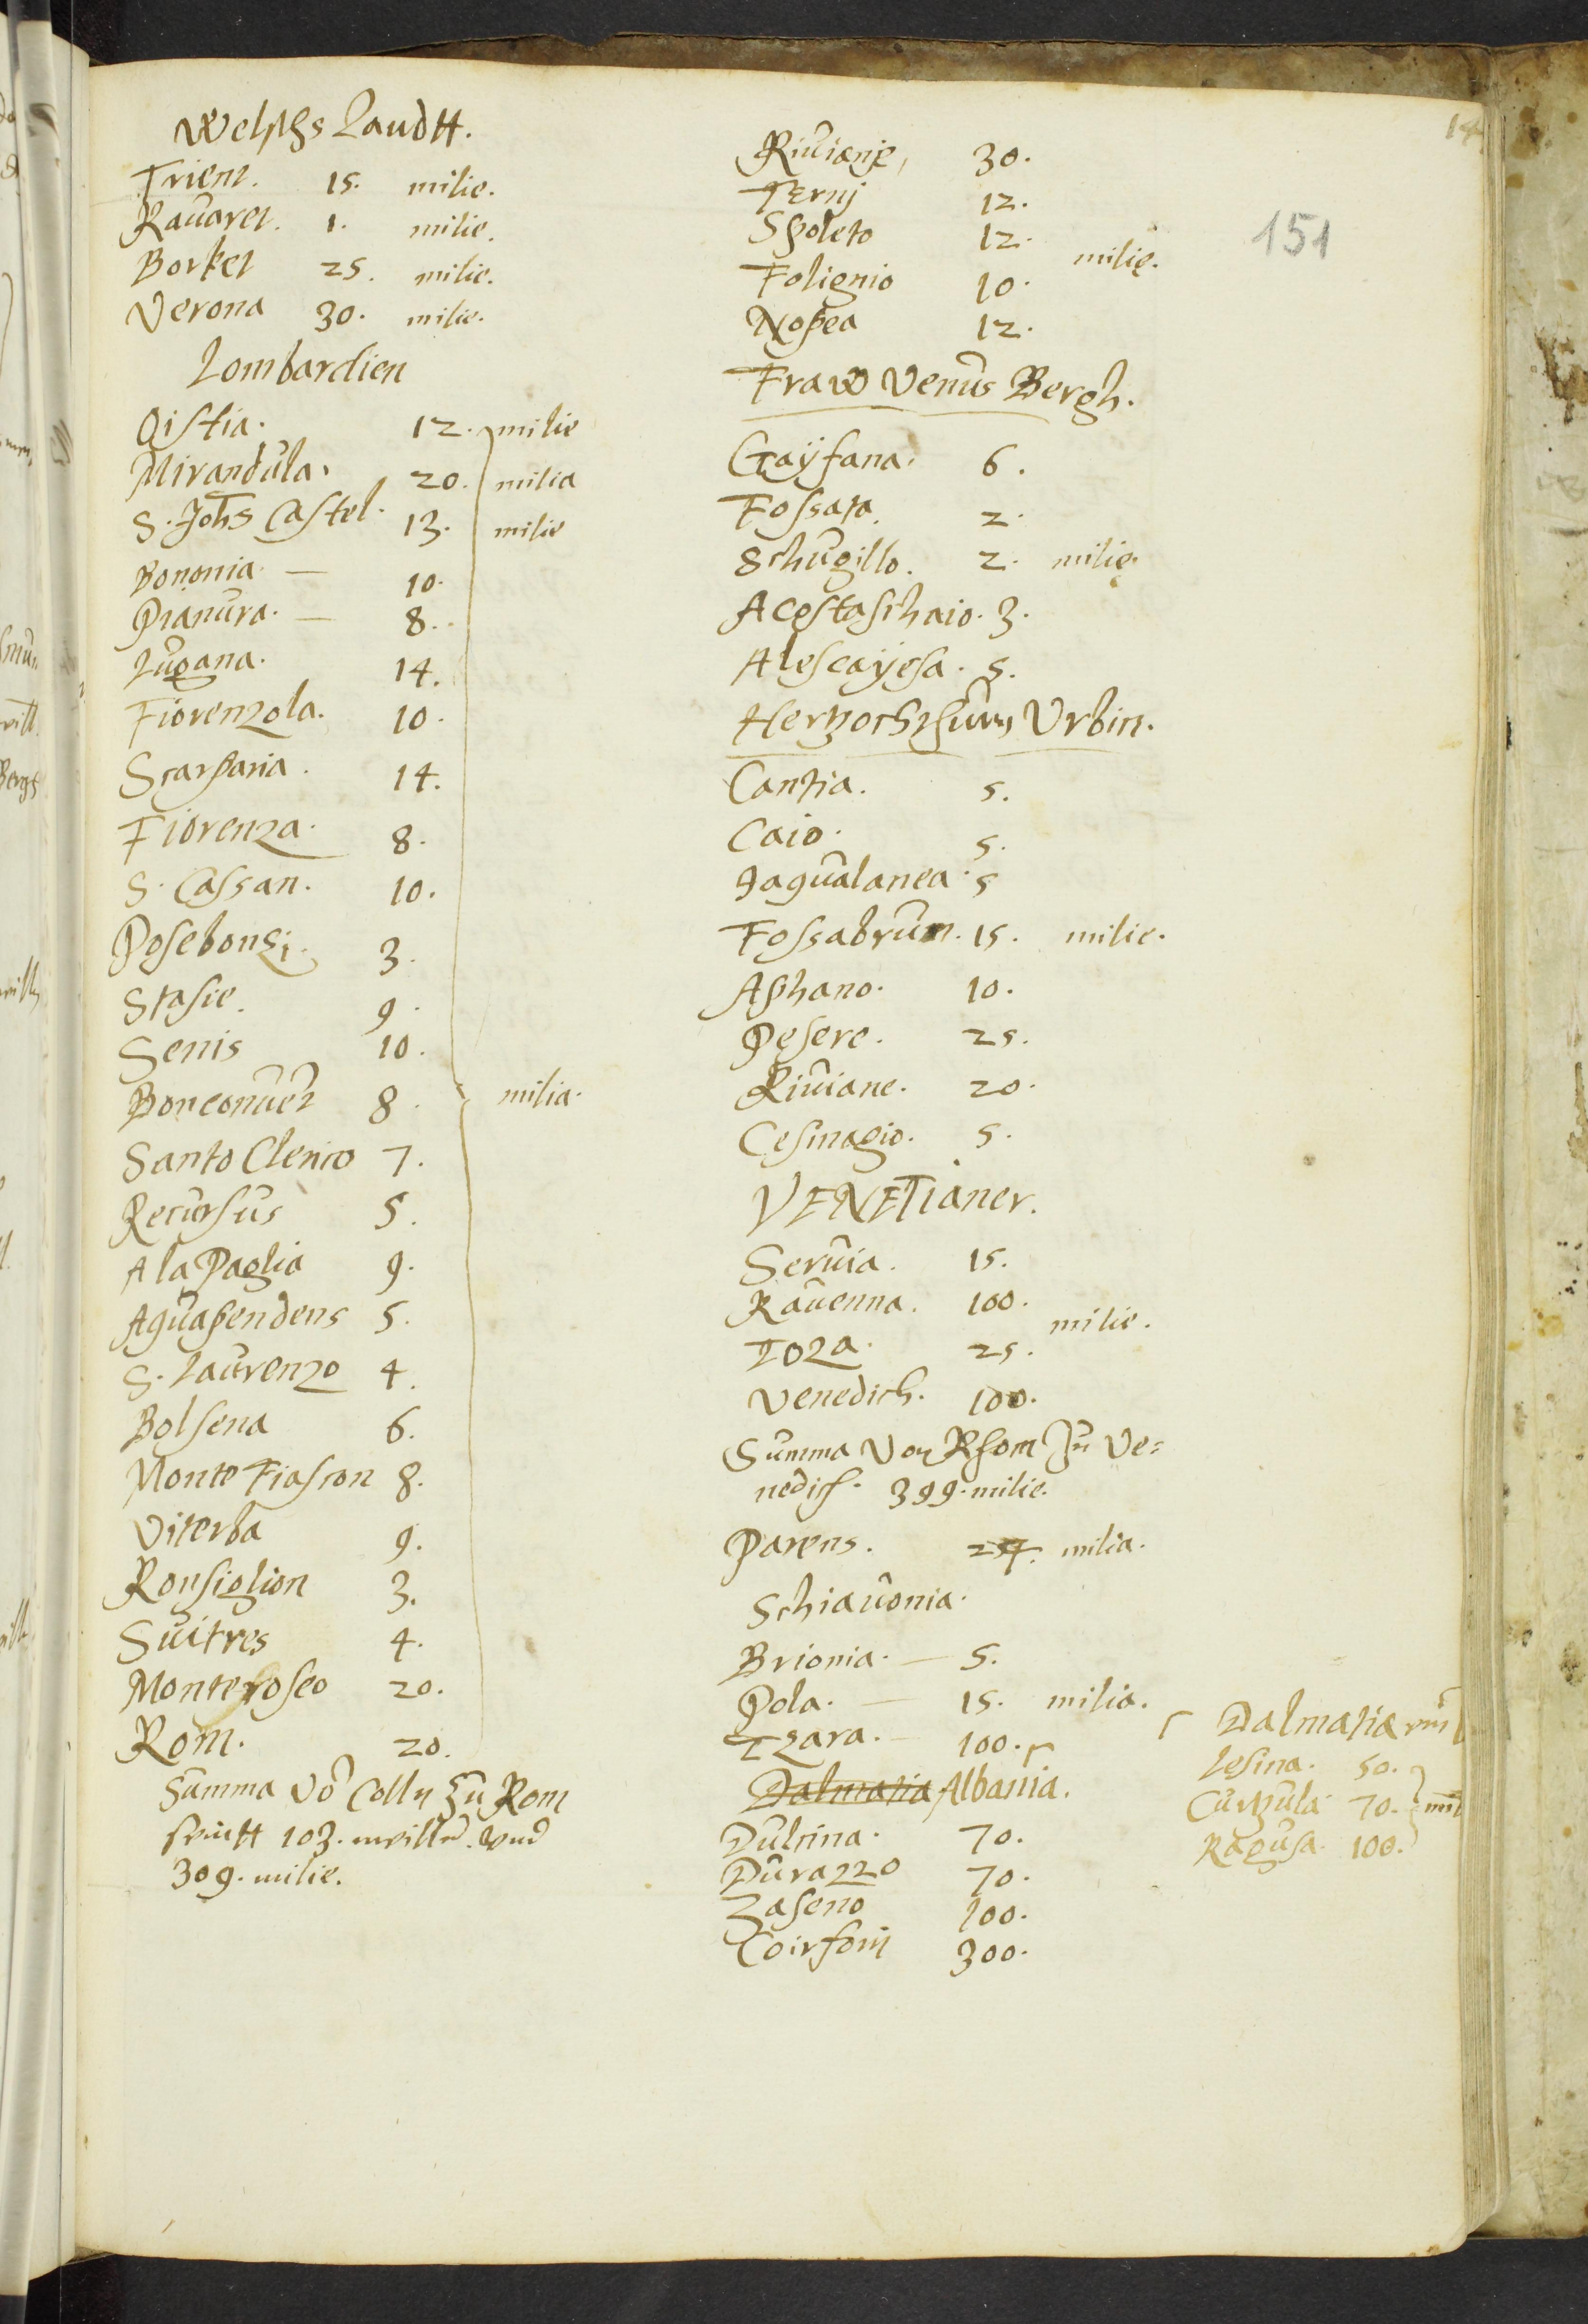 Welschs Landtt.
Trient. 15. milie.
Rauaret. 1. milie.
Borket 25. milie.
Verona 30. milie.
Lombardien
Oistia. 12. milie
Mirandula. 20. milia
S. Johs Castel. 13. milie
Bononia. — 10.
Pianura. — 8.
Lugana. 14.
Fiorenzola. 10.
Scarparia. 14.
Fiorenza. 8.
S. Cassan. 10.
Posebonzi. 3.
Stasie. 9.
Senis 10.
Bonconuet 8. milia.
Santo Clerico 7.
Recursus 5.
A la Paglia 9.
Aquapendens 5.
S. Laurenzo 4.
Bolsena 6.
Monte Fiascon 8.
Viterba 9.
Ronsiglion 3.
Suitres 4.
Monteroseo 20.
Rom. 20.
Summa vo Colln zu Rom
seindt 103. meilln. vnd
309. milie.
14
151
Riuianje, 30.
Ternj 12.
Spoleto 12. milie.
Folignio 10.
Nosea 12.
Fraw Venus Bergh.
Gaÿfana. 6.
Fossata. 2.
Schugillo. 2. milie.
Acostaschaio. 3.
Alescaÿesa. 5.
Hertzochthum Vrbin.
Cantia. 5.
Caio. 5.
Jaqualanea. 5
Fossabrum. 15. milie.
Aphano. 10.
Pesere. 25.
Riuiane. 20.
Cesinagio. 5.
VENETianer.
Seruia. 15.
Rauenna. 100. milie.
Ioza. 25.
Venedich. 100.
Summa von Rhom zu Ve=
nedich. 399. milie.
Parens. milia.
Schiauonia.
Brionia. — 5.
Pola. — 15. milia.
Tzara. — 100.
Dalmatia Albania.
Dulcina. 70.
Durazzo 70.
Zaseno 100.
300.
Dalmatia
Lesina. 50.
Curtzula 70. mil
Ragusa. 100.